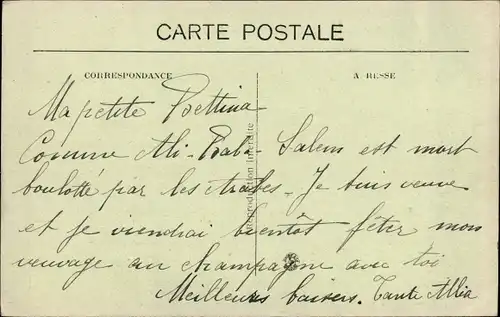 CARTE POSTALE
CORRESPONDANCE
A RESSE
Ma petite Bettina
Comme Ali-Bab- Salem est mort
boulotté par les arabes - Je suis veuve
et je viendrai bientôt fêter mon
veuvage au champagne avec toi
Meilleurs baisers. Tante
Reproduction interdite